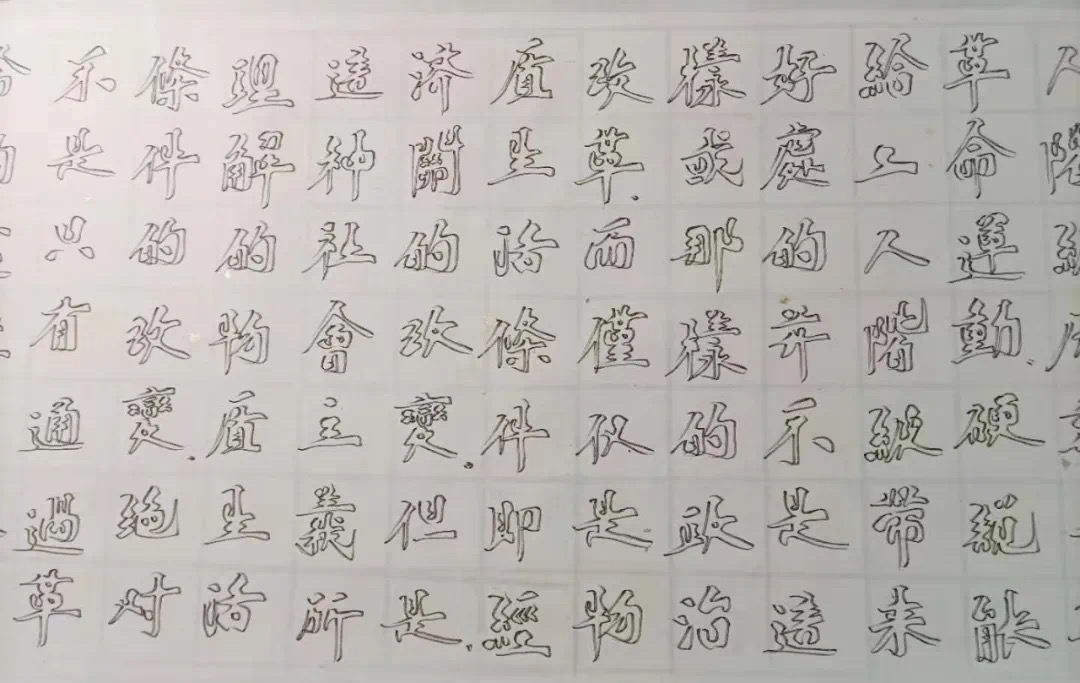 革命運動.硬說能
給工人階級帶來
好處的并不是這
樣或那樣的政治
改革.而僅仅是物
質生活條件即經
濟關的改變.但是.
這种社會主義所
理解的物質生活
條件的改變.絕對
不是只有通過革